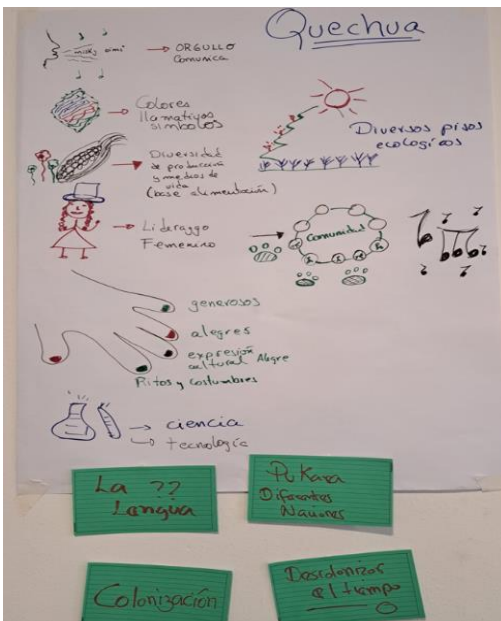 Quechua
→ ORGULLO
Comunica
→ Colores
llamativos
simbolos
Diversos pisos
ecologicos
→ Diversidad
de producción
y medios de
vida
(base alimentación)
→ Liderazgo
Femenino
→ Comunidad
generosos
alegres
expresión
cultural Alegre
Ritos y costumbres
→ ciencia
→ tecnología
La ??
Lengua
PuKara
Diferentes
Naciones
Colonización
Descolonizar
el tiempo